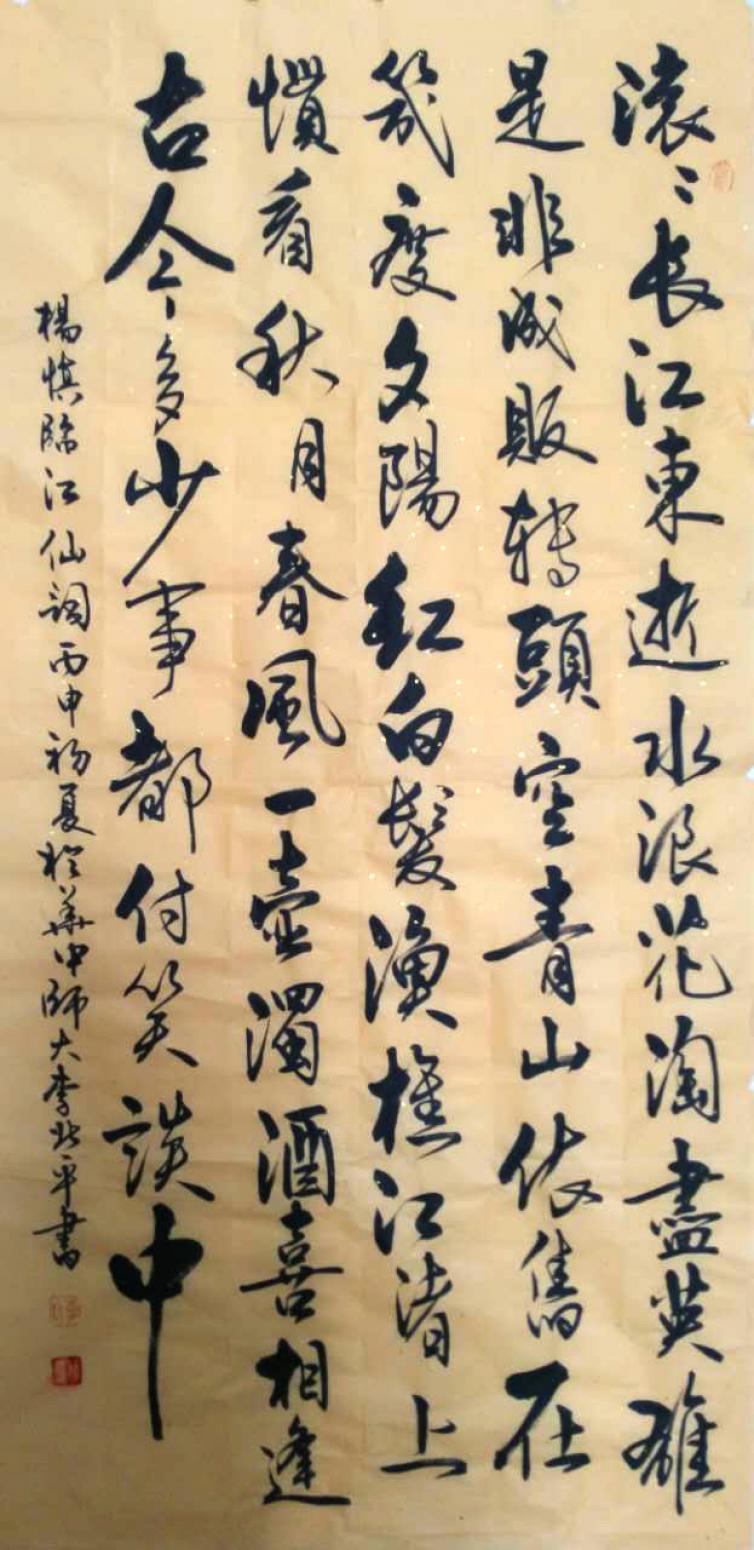 滚〻长江東逝水浪花淘盡英雄
是非成販轉頭空青山依舊在
幾度夕陽紅白髮漁樵江渚上
慣看秋月春風一壺濁酒喜相逢
古今多少事都付笑談中
楊慎臨江仙詞丙申初夏於華中師大李北平書